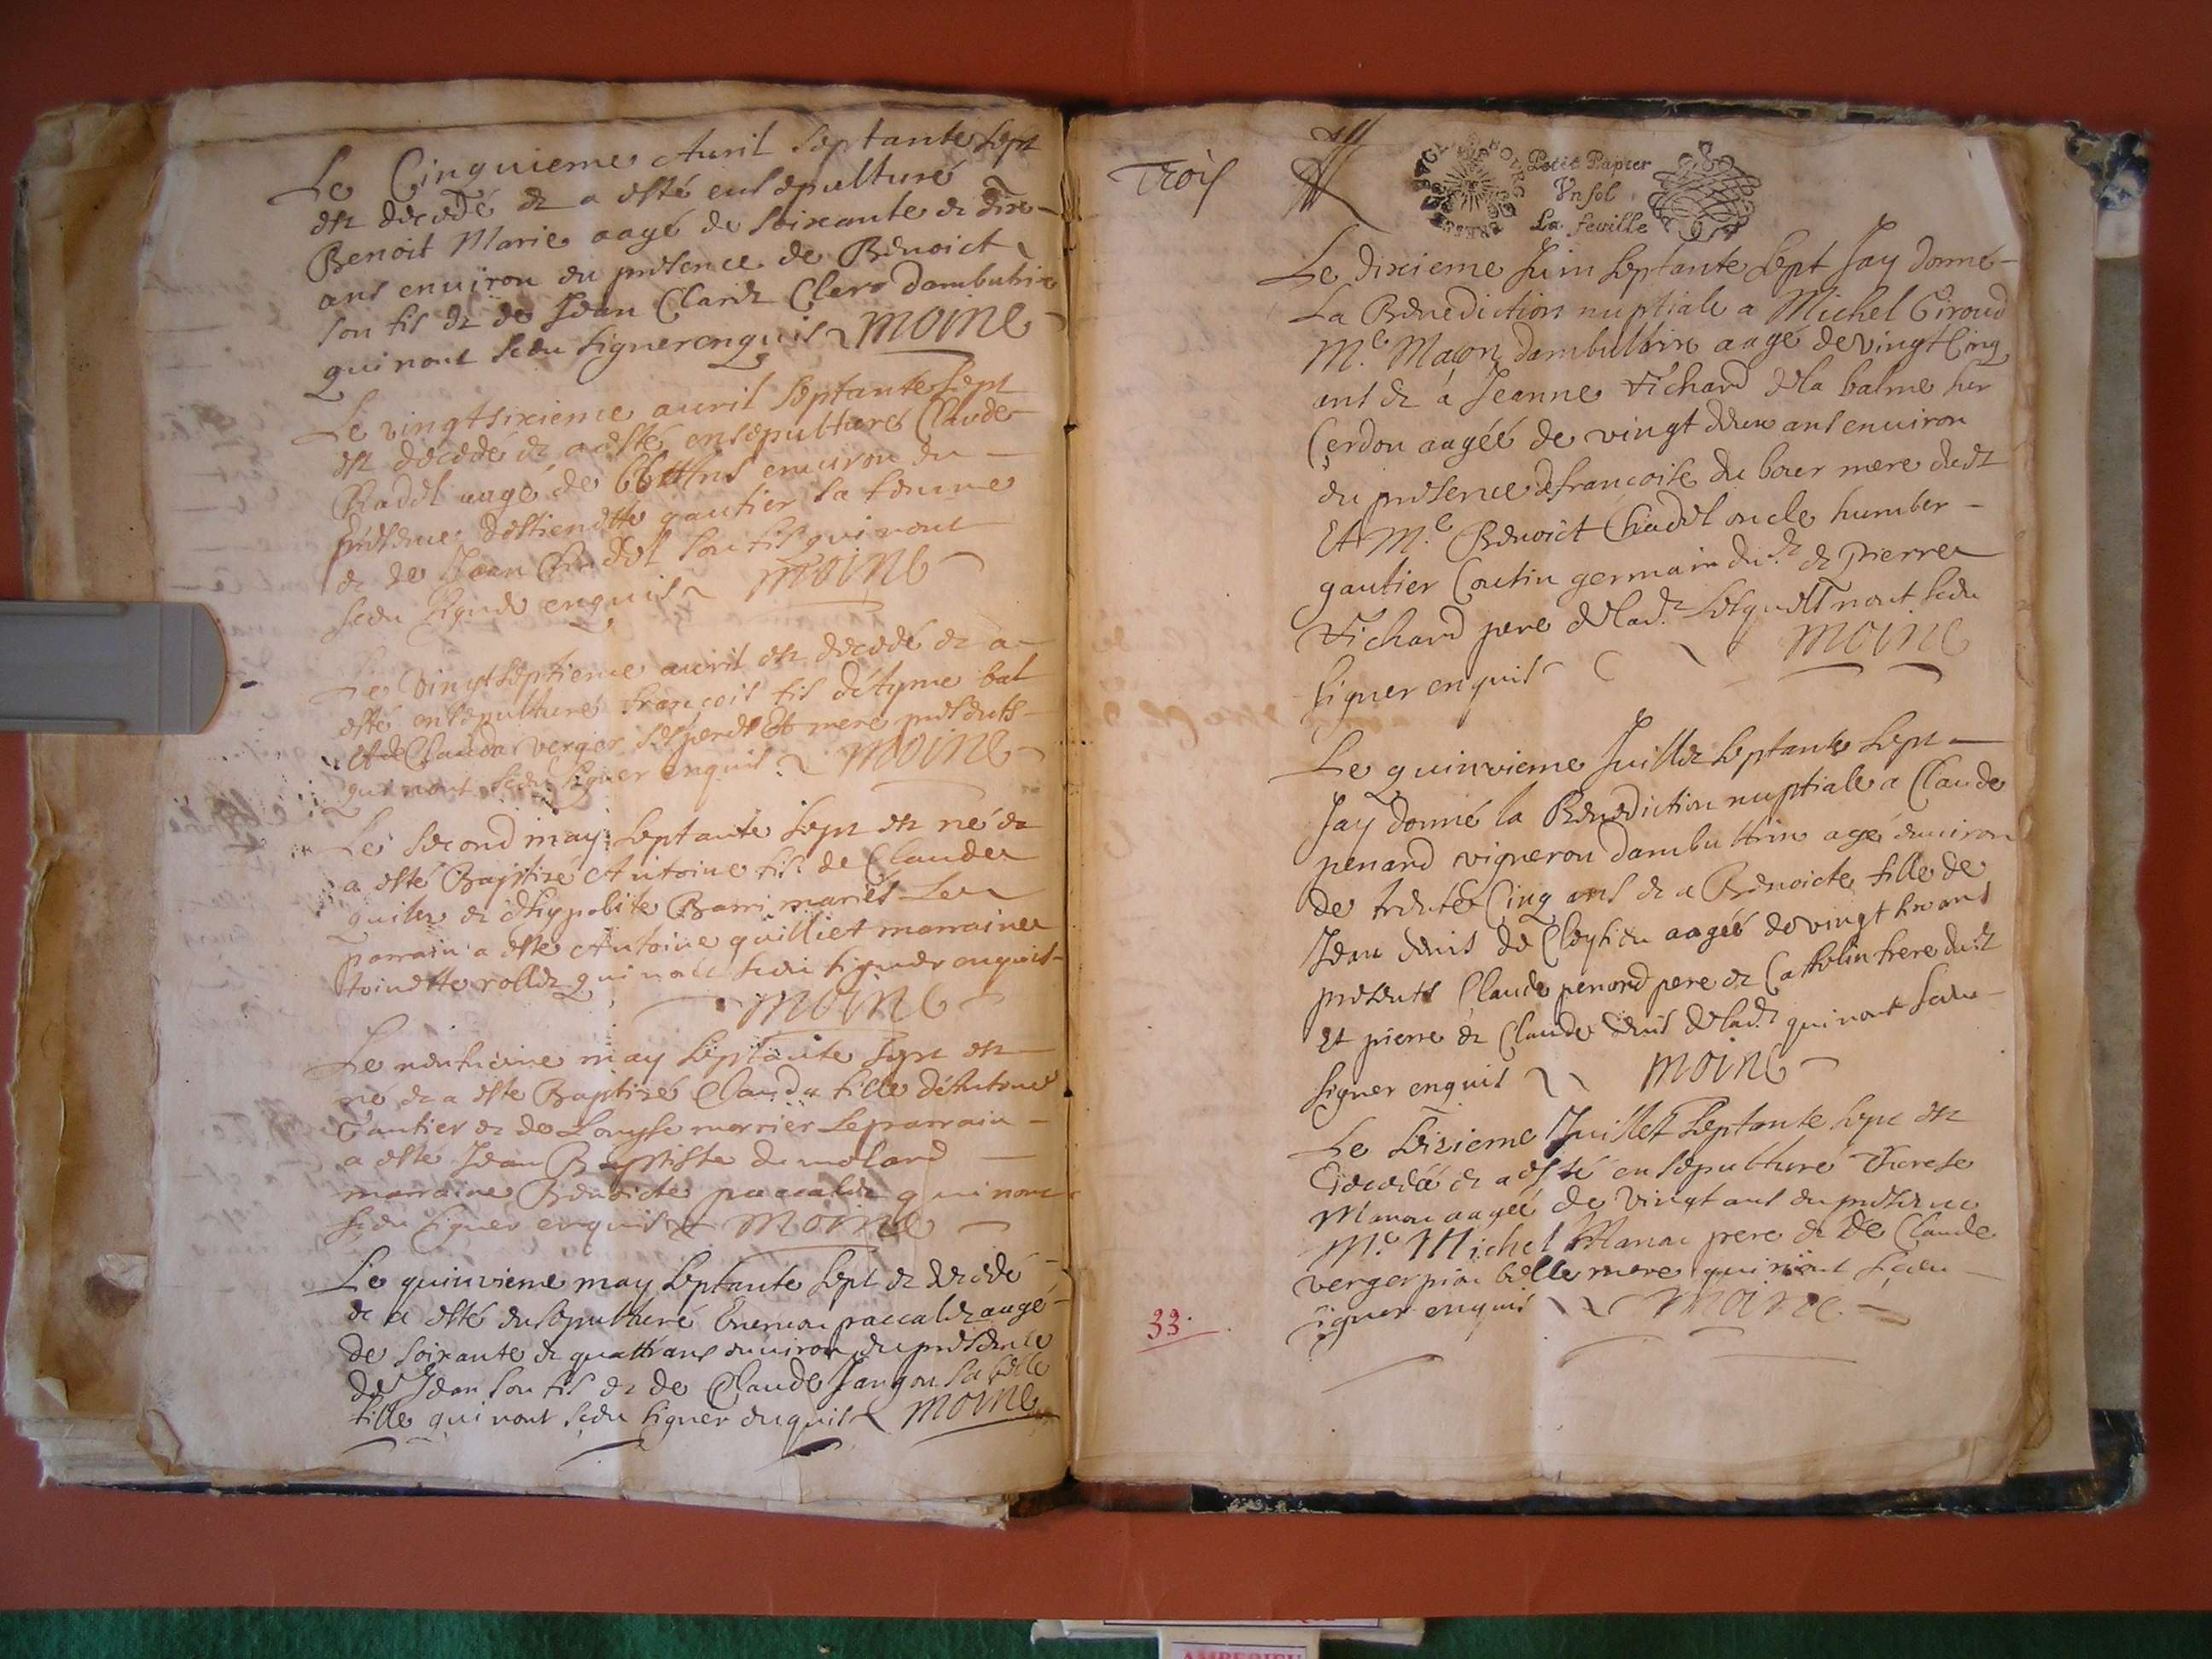 Le Cinquieme Auril septante sept
est decedé et a esté ensepulturé
Benoit Marie aagé de soixante et dix
ans enuiron en presence de Benoict
son fils et de Jean Claude Clero dambutrix
qui nont sceu signer enquis Moine
Le vingtsixieme auril septante sept
est decedé et a esté ensepulturé Claude
Chadel aagé de ans enuiron en
presence destienette gautier sa femme
et de Jean Chadel son fils qui nont
sceu signer enquis Moine
Le vingtseptieme auril est decedé et a
esté ensepulturé françois fils détyene bal
et de Clauda verger ses peres Et mere presents
qui nont sceu signer enquis Moine
Le second may septante sept est né et
a esté Baptisé Antoine fils de Claude
et dhypolite mariés Le
parrain a esté Antoine quilliet marraine
toinette rollet qui nont sceu signer enquis
Moine
Le neufuieme may septante sept est
né et a esté Baptisé Clauda fille détienne
Gautier et de Louyse mernier Le parrain
a esté Jean Baptiste du molard
marraine Benoicte paccalet qui nont
sceu signer enquis Moine
Le quinzieme may septante sept est decedé
et a esté ensepulturé paccalet aagé
de soixante et quattr ans enuiron en presence
de Jean son fils et de Claude Jangon sa belle
fille qui nont sceu signer enquis Moine
Trois
Petit Papier
Vn sol
La feuille
Le dixieme Juin septante sept Jay donné
La Benediction nuptiale a Michel Giroud
Me. Maçon dambutrix aagé de vingt Cinq
ans et a Jeanne Vichard de la balme sur
Cerdon aagée de vingt deux ans enuiron
en presence de françoise du bour mere dudt
Et Me. Benoict Chadel oncle humber
gautier Coutin germain dudt. et pierre
Vichard pere de lad. lesquels nont sceu
signer enquis Moine
Le quinzieme Juillet septante sept
Jay donné la Benediction nuptiale a Claude
penard vigneron dambutrix agé enuiron
de trente Cinq ans et a Benoicte fille de
Jean denis de aagée de vingt six ans
presents Claude penard pere et Cattelin frere dudt
Et pierre et Claude denis de ladt qui nont sceu
signer enquis Moine
Le seizieme Juillet septante sept est
decedée et a esté ensepulturé Therese
aagée de vingt ans en presence
Me. Michel pere et de Claude
verger belle mere qui nont sceu
signer enquis Moine
33.